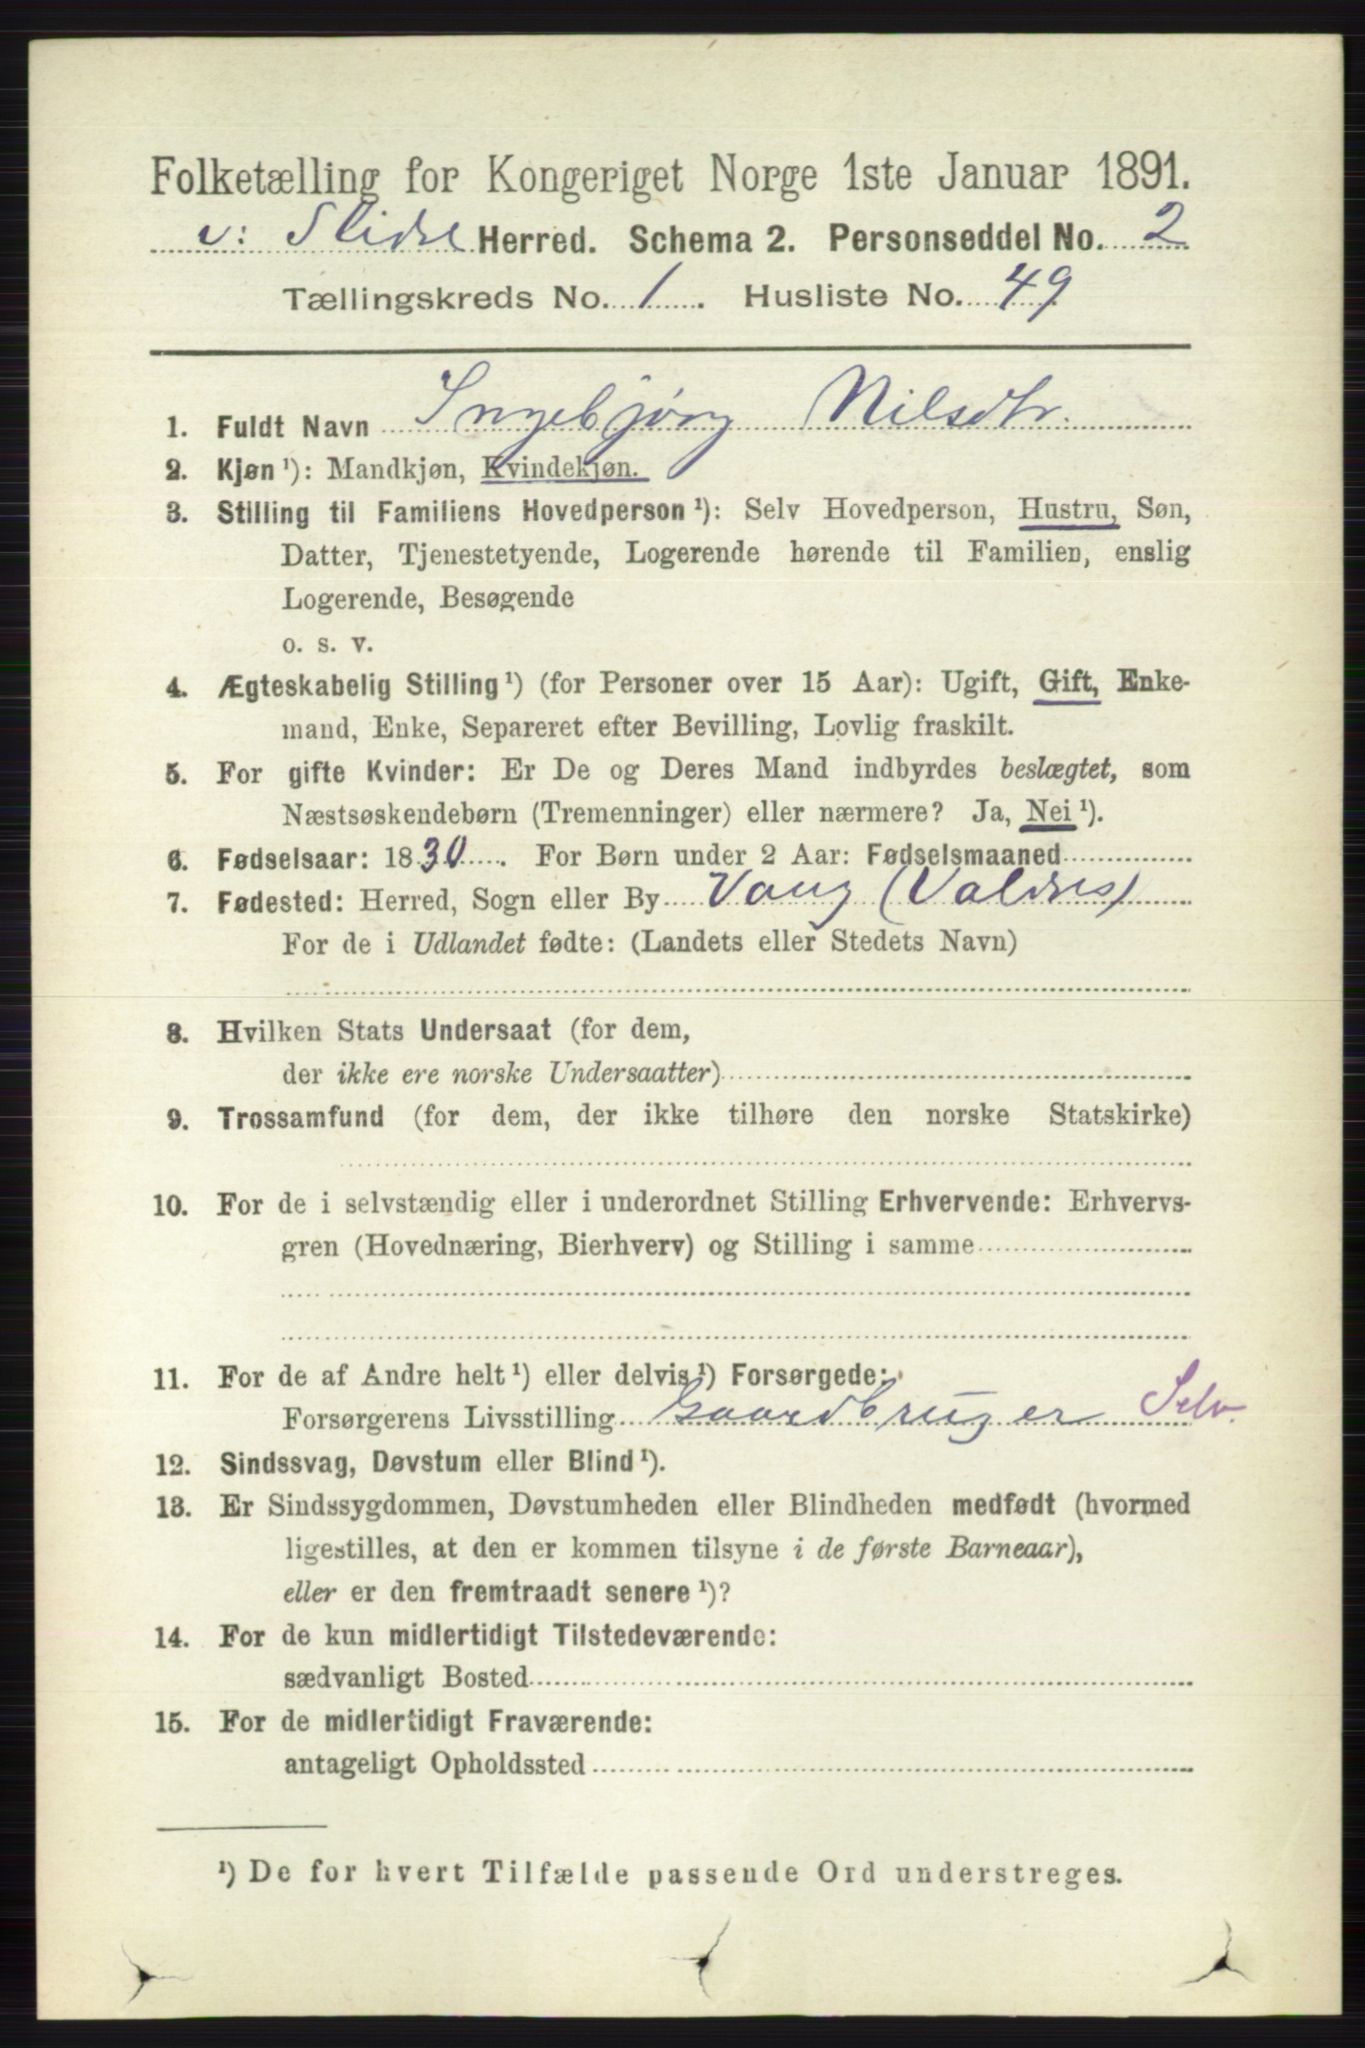 Folketælling for Kongeriget Norge 1ste Januar 1891.
v: Slidre Herred. Schema 2. Personseddel No. 2
Tællingskreds No. 1. Husliste No. 49
1. Fuldt Navn Ingebjørg Nilsdtr.
2. Kjøn ¹): Mandkjøn, Kvindekjøn.
3. Stilling til Familiens Hovedperson ¹): Selv Hovedperson, Hustru, Søn,
Datter, Tjenestetyende, Logerende hørende til Familien, enslig
Logerende, Besøgende
o. s. v.
4. Ægteskabelig Stilling ¹) (for Personer over 15 Aar): Ugift, Gift, Enke-
mand, Enke, Separeret efter Bevilling, Lovlig fraskilt.
5. For gifte Kvinder: Er De og Deres Mand indbyrdes beslægtet, som
Næstsøskendebørn (Tremenninger) eller nærmere? Ja, Nei ¹).
6. Fødselsaar: 1830. For Børn under 2 Aar: Fødselsmaaned
7. Fødested: Herred, Sogn eller By Vang (Valdres)
For de i Udlandet fødte: (Landets eller Stedets Navn)
8. Hvilken Stats Undersaat (for dem,
der ikke ere norske Undersaatter)
9. Trossamfund (for dem, der ikke tilhøre den norske Statskirke)
10. For de i selvstændig eller i underordnet Stilling Erhvervende: Erhvervs-
gren (Hovednæring, Bierhverv) og Stilling i samme
11. For de af Andre helt ¹) eller delvis ¹) Forsørgede:
Forsørgerens Livsstilling Gaardbruger Selv.
12. Sindssvag, Døvstum eller Blind ¹).
13. Er Sindssygdommen, Døvstumheden eller Blindheden medfødt (hvormed
ligestilles, at den er kommen tilsyne i de første Barneaar),
eller er den fremtraadt senere ¹)?
14. For de kun midlertidigt Tilstedeværende:
sædvanligt Bosted
15. For de midlertidigt Fraværende:
antageligt Opholdssted
¹) De for hvert Tilfælde passende Ord understreges.